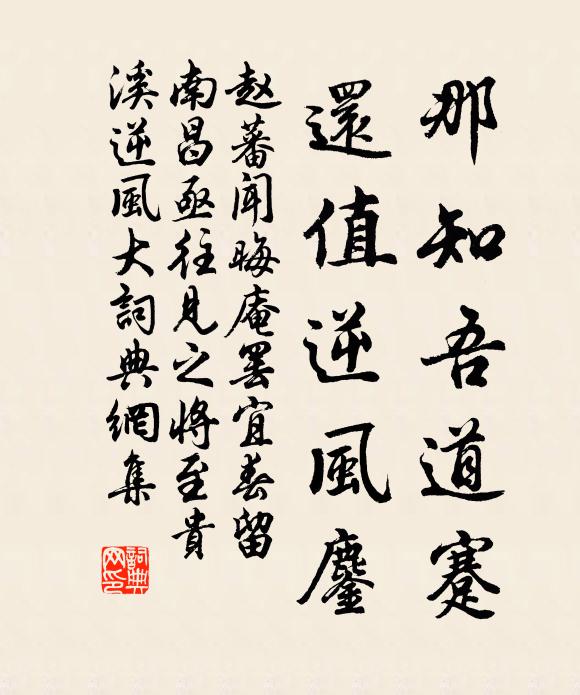 那知吾道蹇
還值逆風鏖
趙蕃聞晦庵罷宜春留
南昌亟往見之將至貴
溪逆風大詞典網集
詞典网印